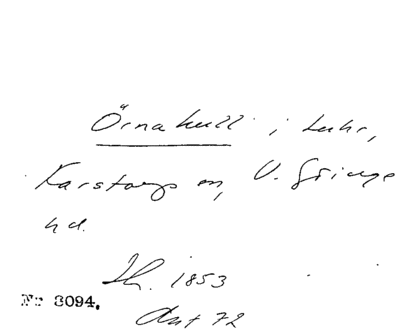 Örnakull i Luhr,
Karstorps sn, V. Göinge
hd.
Th. 1853
Nr 3094.
Ant 72